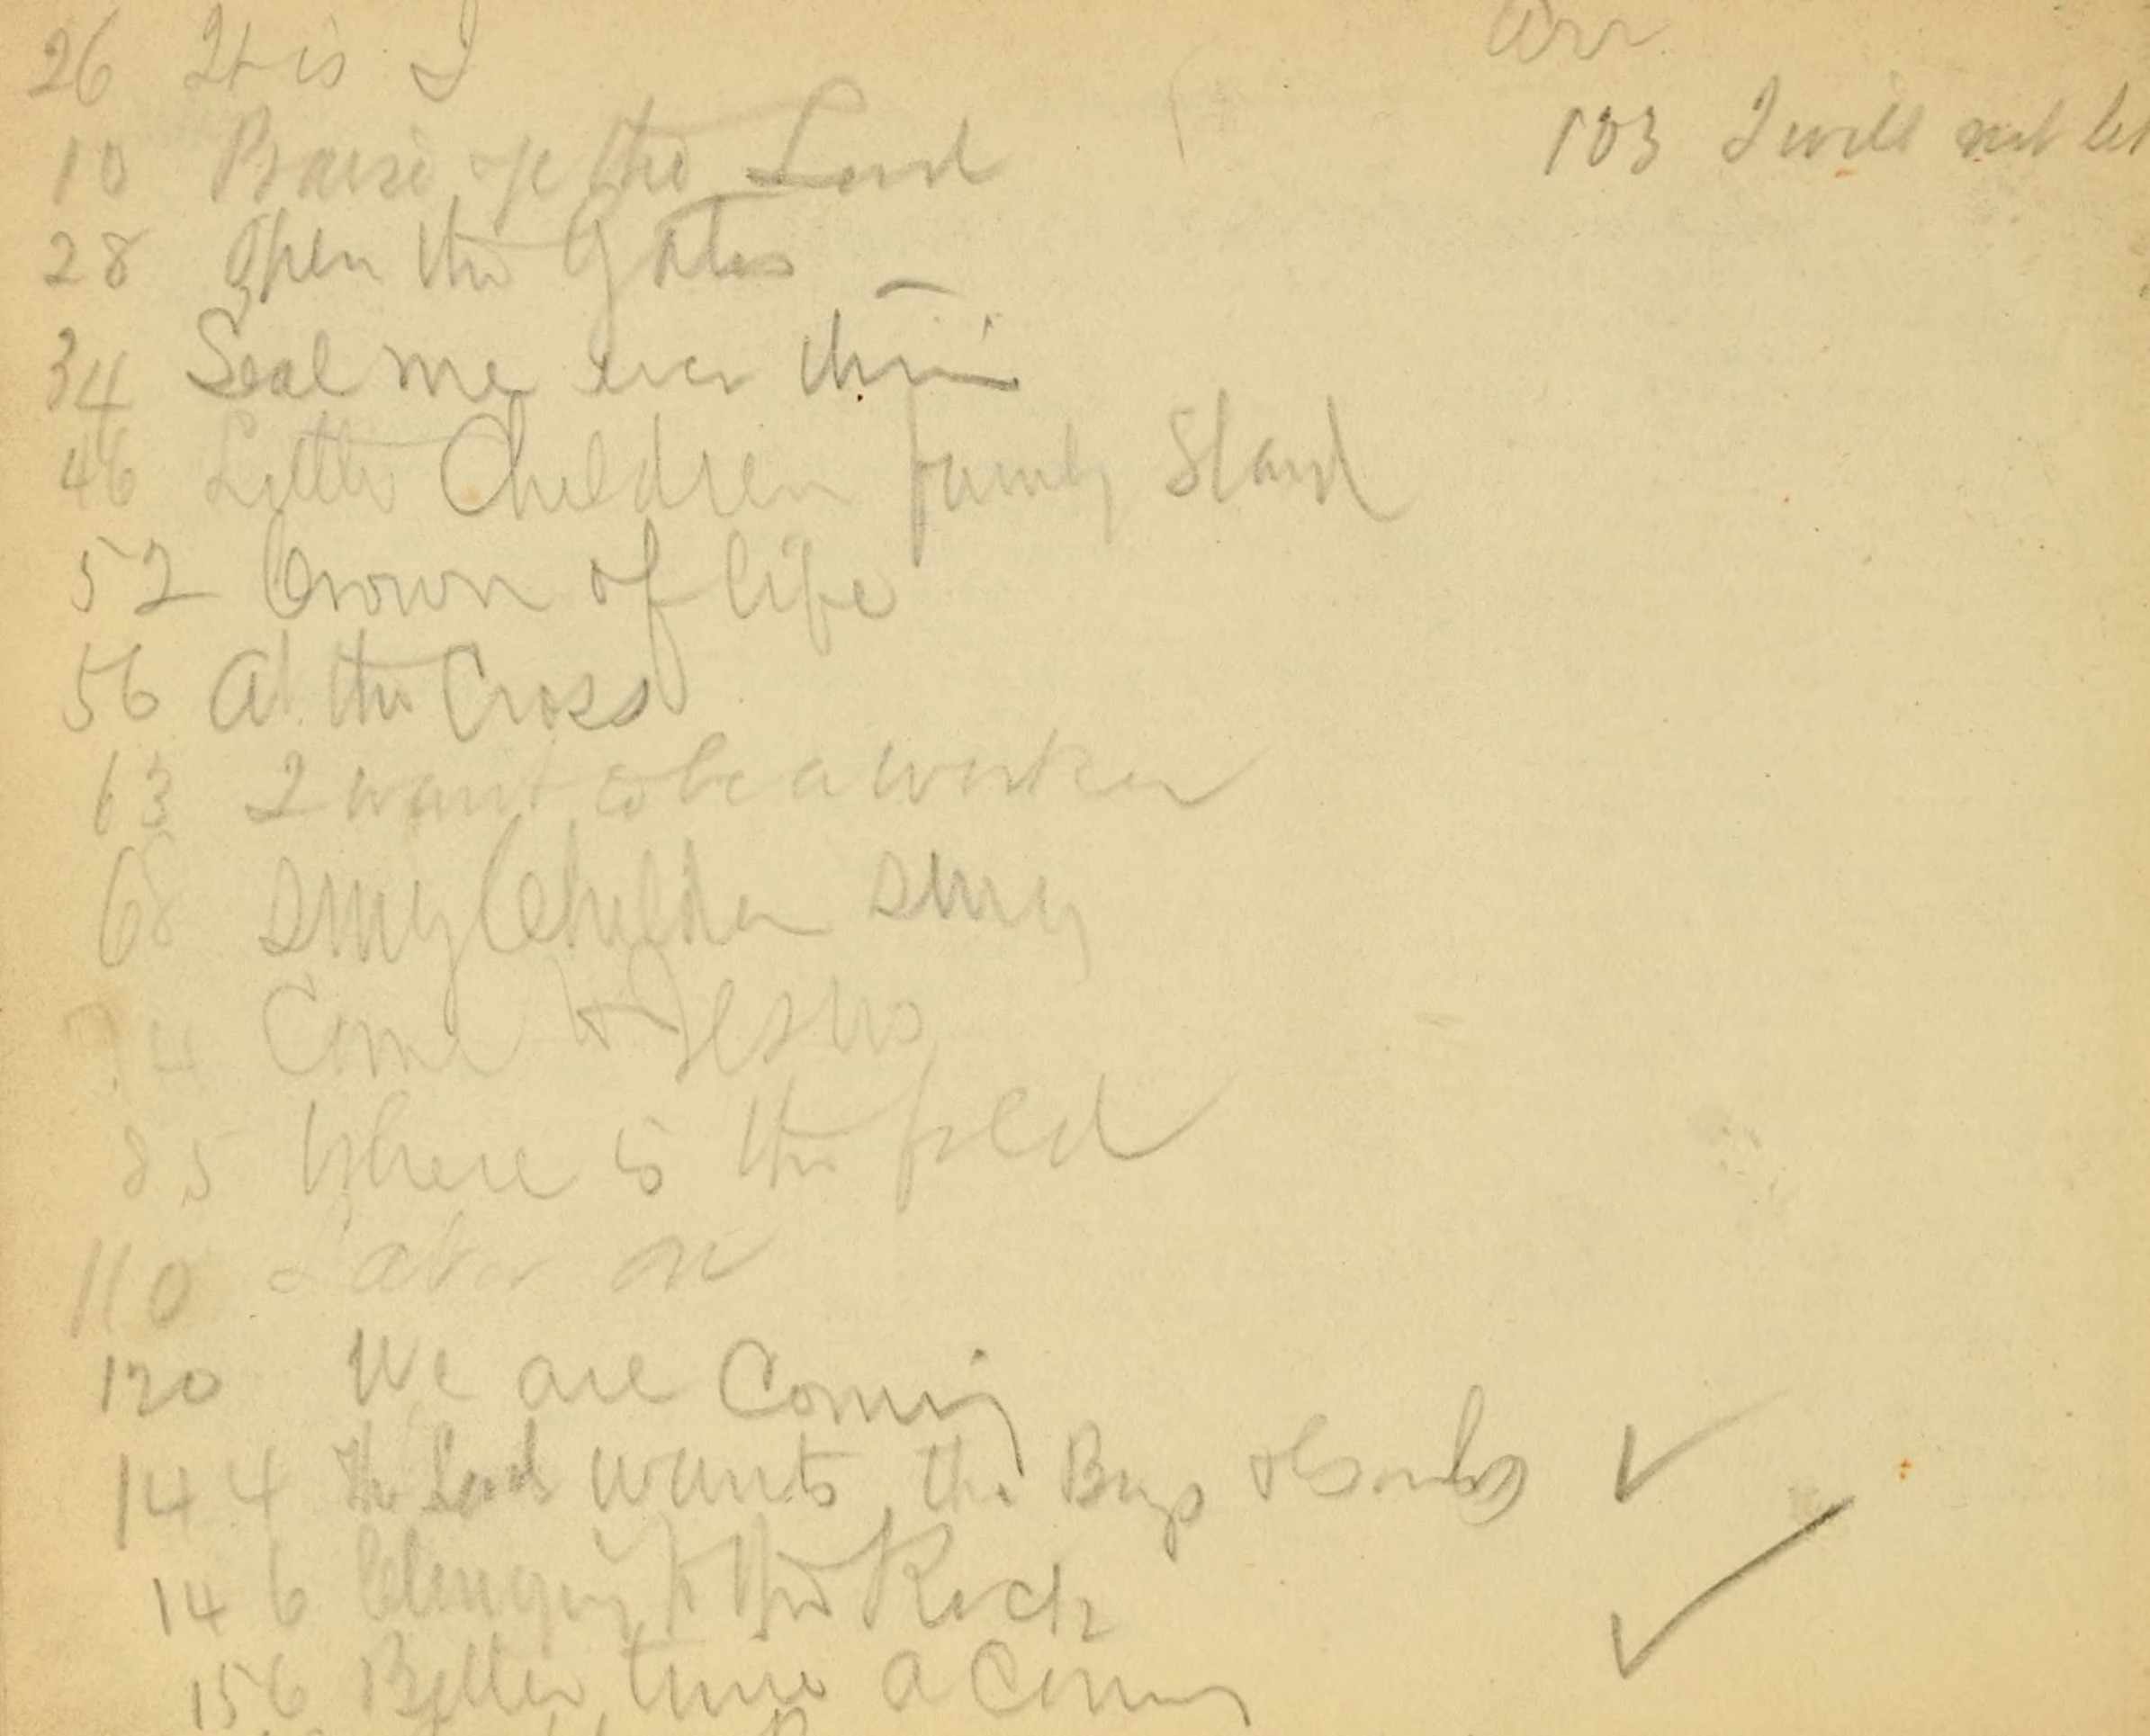 26 It is I
10 Praise ye the Lord
103 I will not let
28 Open the Gates
34 Seal me ever thine
46 Little Children firmly Stand
52 Crown of life
56 At the Cross
63 I want to be a worker
68 Sing Children Sing
74 Come to Jesus
85 Where is the fold
110 Later on
120 We are Coming
144 The Lord wants the Boys & ✓
146 Clinging to the Rock ✓
156 Better time a Coming